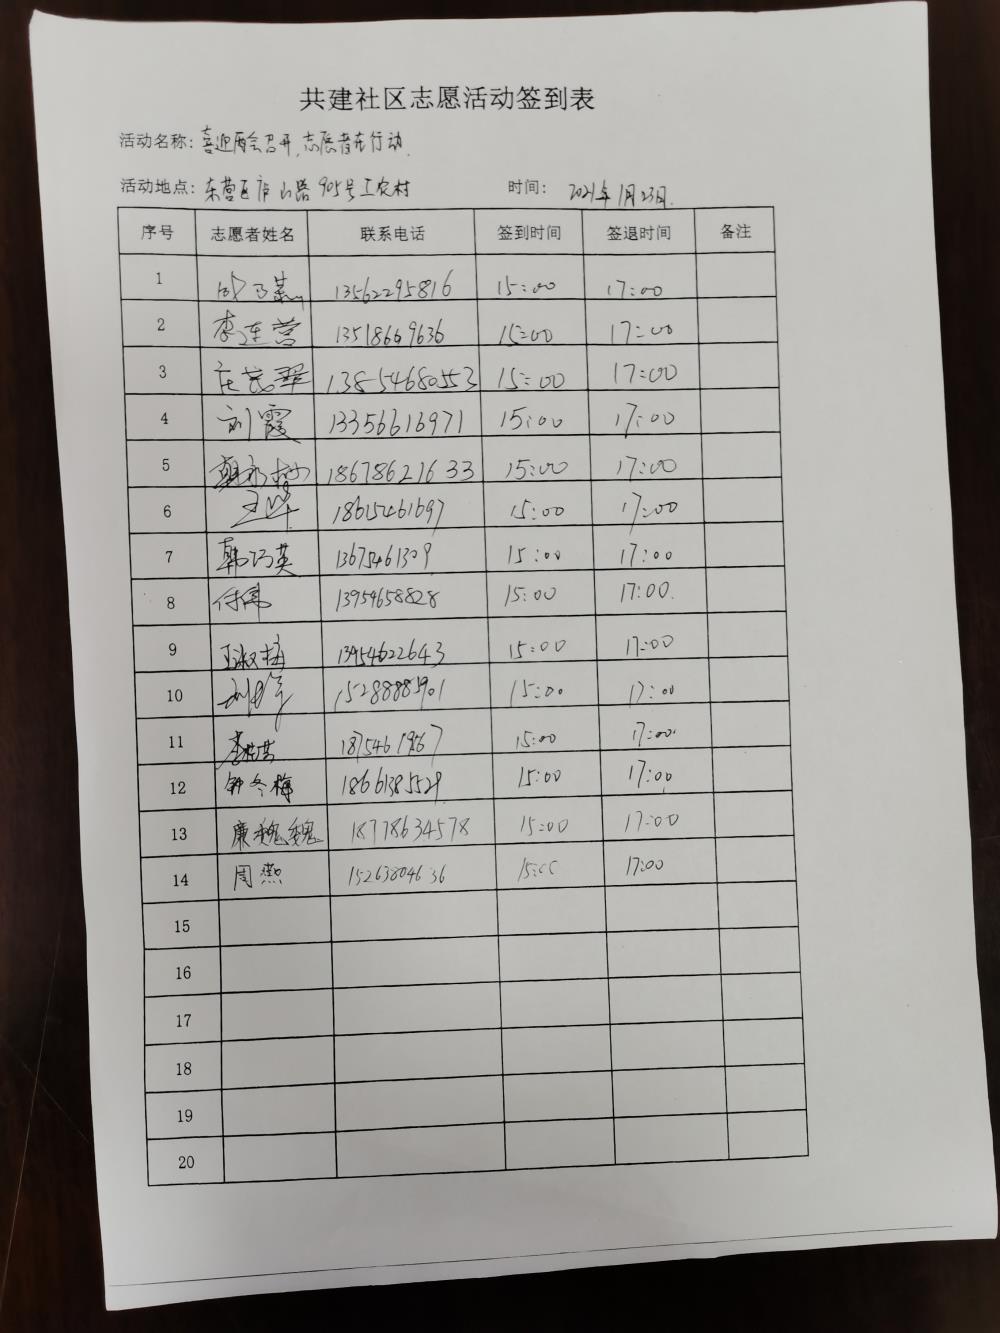 共建社区志愿活动签到表
活动名称：喜迎两会召开,志愿者在行动.
活动地点：东营区庐山路905号工农村 时间： 2021年1月23日.
序号 志愿者姓名 联系电话 签到时间 签退时间 备注
1 13562295816 15:00 17:00
2 李连营 13518669636 15:00 17:00
3 庄茂翠 13854680553 15:00 17:00
4 刘霞 13356616971 15:00 17:00
5 18678621633 15:00 17:00
6 18615461697 15:00 17:00
7 韩巧英 13675461309 15:00 17:00
8 付伟 13954658828 15:00 17:00.
9 王淑梅 13954622643 15:00 17:00
10 15288885901 15:00 17:00
11 15:00 17:00.
12 钟冬梅 18661385529 15:00 17:00
13 廉巍巍 18778634578 15:00 17:00
14 周燕 15263804636 15:00 17:00
15
16
17
18
19
20